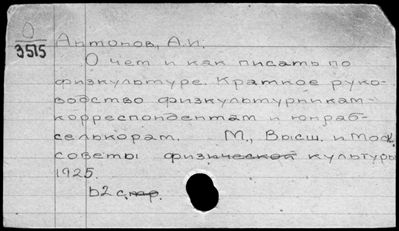 О
3515
Антонов, А.И.
О чем и как писать по
физкультуре. Краткое руко-
водство физкультурникам-
корреспондентам и юнраб-
селькорам. М., Высш. и Моск.
советы физической культуры
1925.
62 стр.